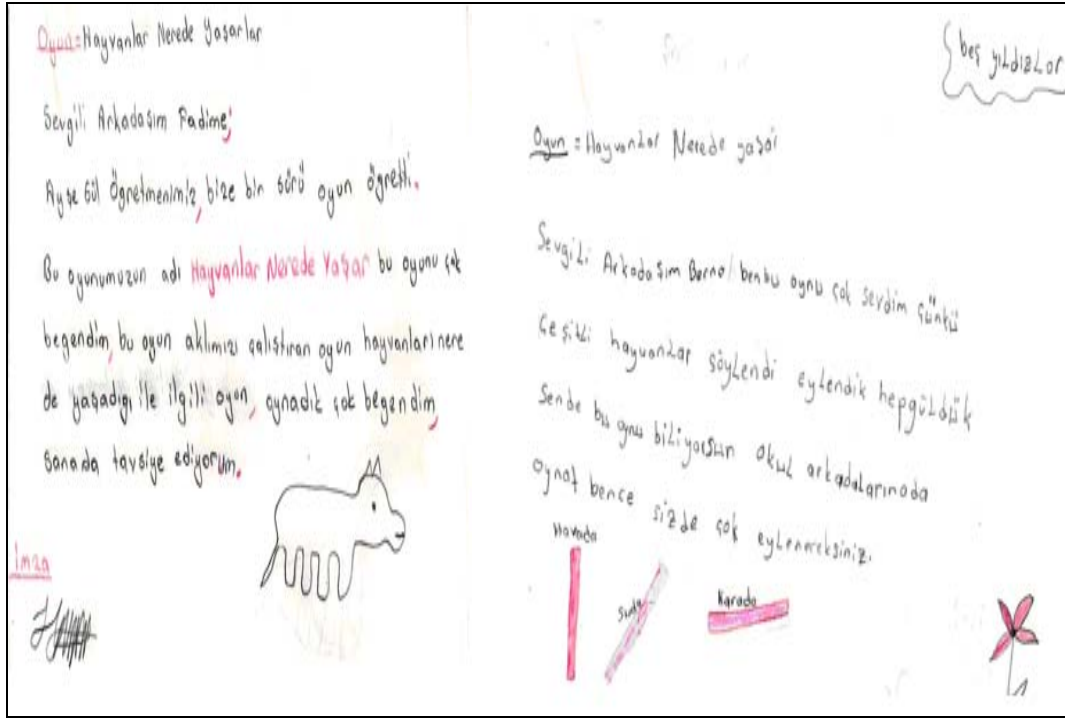 Oyun=Hayvanlar Nerede Yaşarlar
Sevgili Arkadaşım Fadime;
Ayşe Gül Ögretmenimiz, bize bin sürü oyun ögretti.
Bu oyunumuzun adı Hayvanlar Nerede Yaşar bu oyunu çok
begendim, bu oyun aklımızı çalıştıran oyun hayvanları nere
de yaşadıgı ile ilgili oyun, oynadık çok begendim,
sanada tavsiye ediyorum.
İmza
beş yıLdızLar
Oyun = HayvanLar Nerede yaşar
SevgiLi Arkadaşım Berna/ benbu oynu çok sevdim çünkü
Çeşitli hayvanLar söyLendi eylendik hepgüldük
Sende bu oynu biLiyorsun okuL arkadaLarınada
oynat bence sizde çok eyLeneceksiniz.
Havada
Suda
Karada